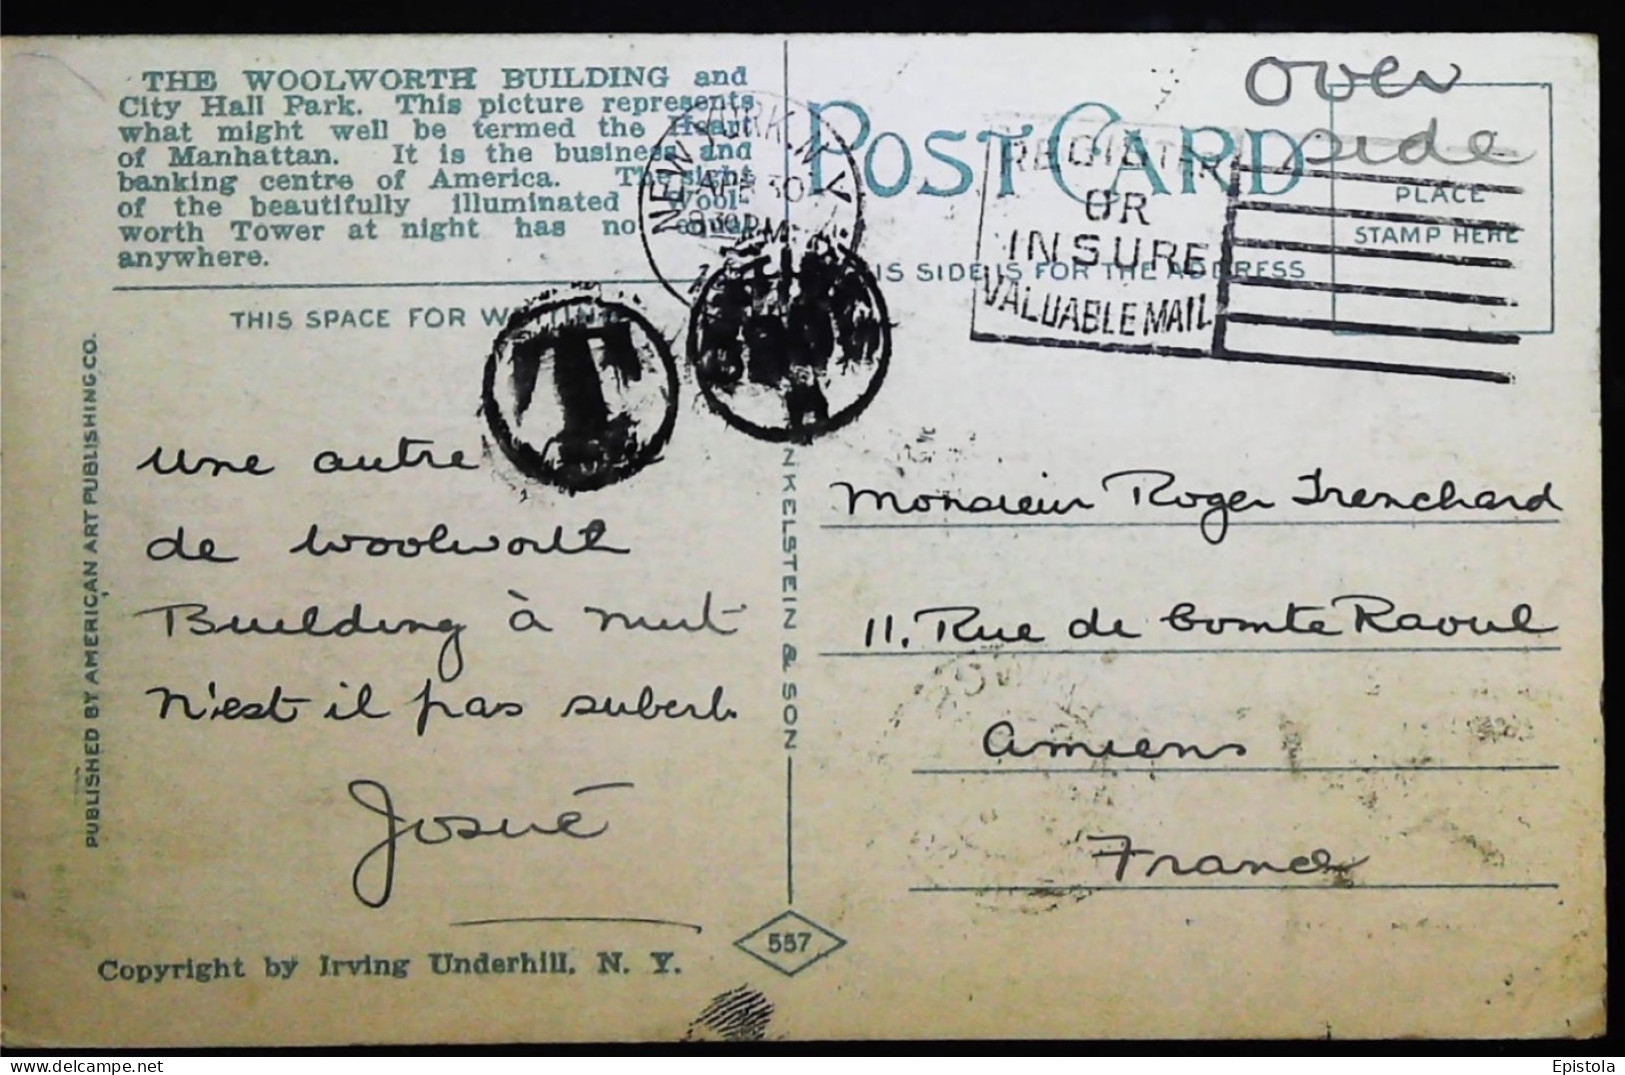 THE WOOLWORTH BUILDING and
City Hall Park. This picture represents
what might well be termed the Heart
of Manhattan. It is the business and
banking centre of America. The sight
of the beautifully illuminated Wool-
worth Tower at night has no equal
anywhere.
THIS SPACE FOR WRITING
PUBLISHED BY AMERICAN ART PUBLISHING CO.
une autre
de woolworth
Building à nuit
n'est il pas suberb.
Josué
Copyright by Irving Underhill, N. Y.
NEW YORK, N.Y.
APR 30
830 PM
T
NKELSTEIN & SON
557
POST CARD
THIS SIDE IS FOR THE ADDRESS
REGISTER
OR
INSURE
VALUABLE MAIL
Over
side
PLACE
STAMP HERE
Monsieur Roger Trenchard
11. Rue de Comte Raoul
Amiens
France
© Epistola